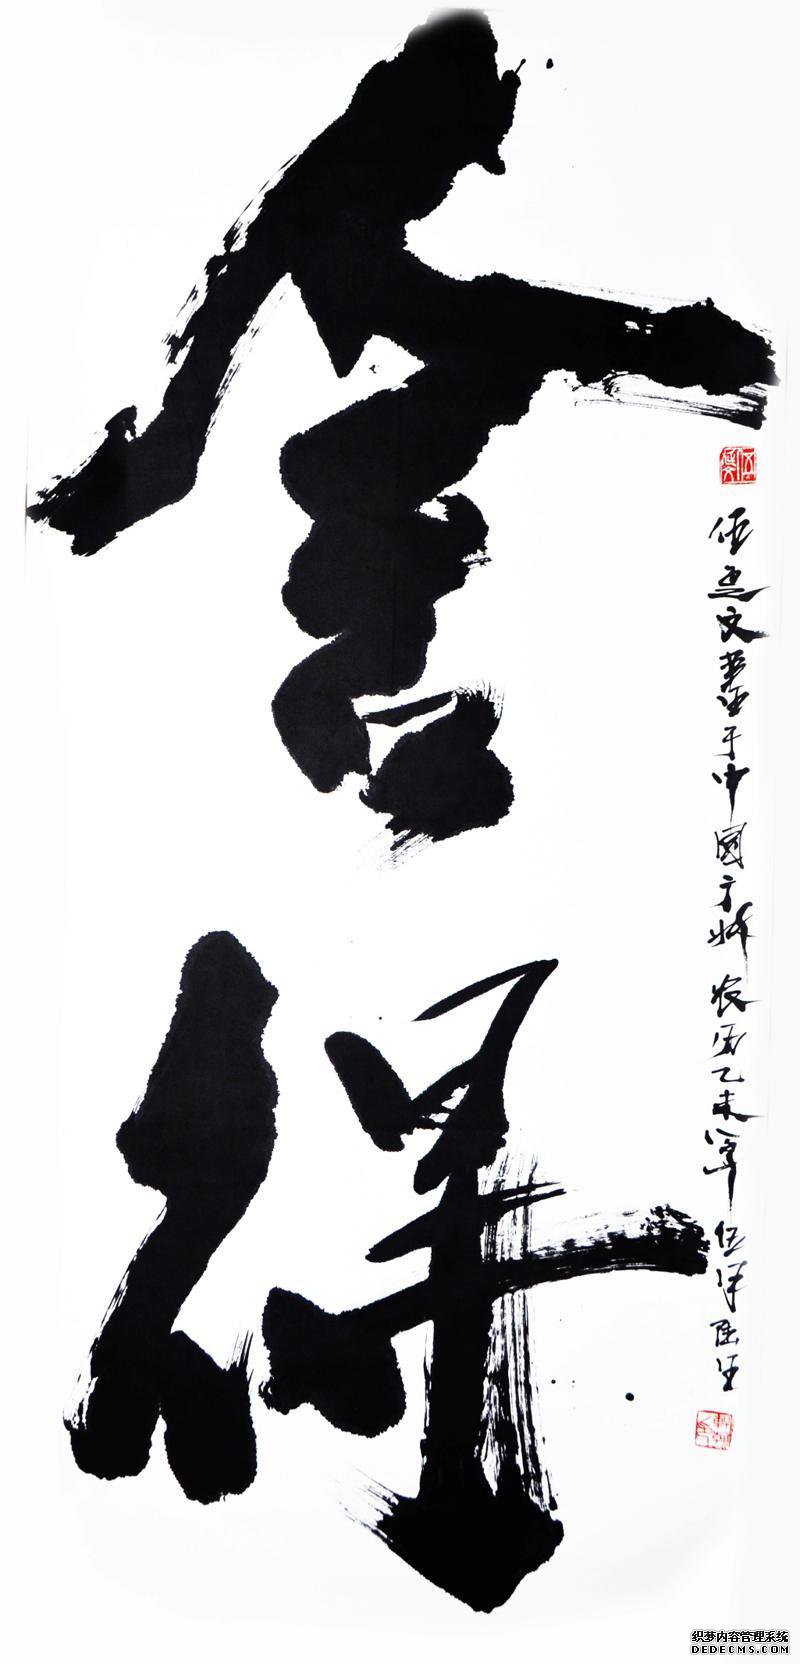 舍得
伍延文墨于中国广州 农历乙未年
织梦内容管理系统
DEDECMS.COM